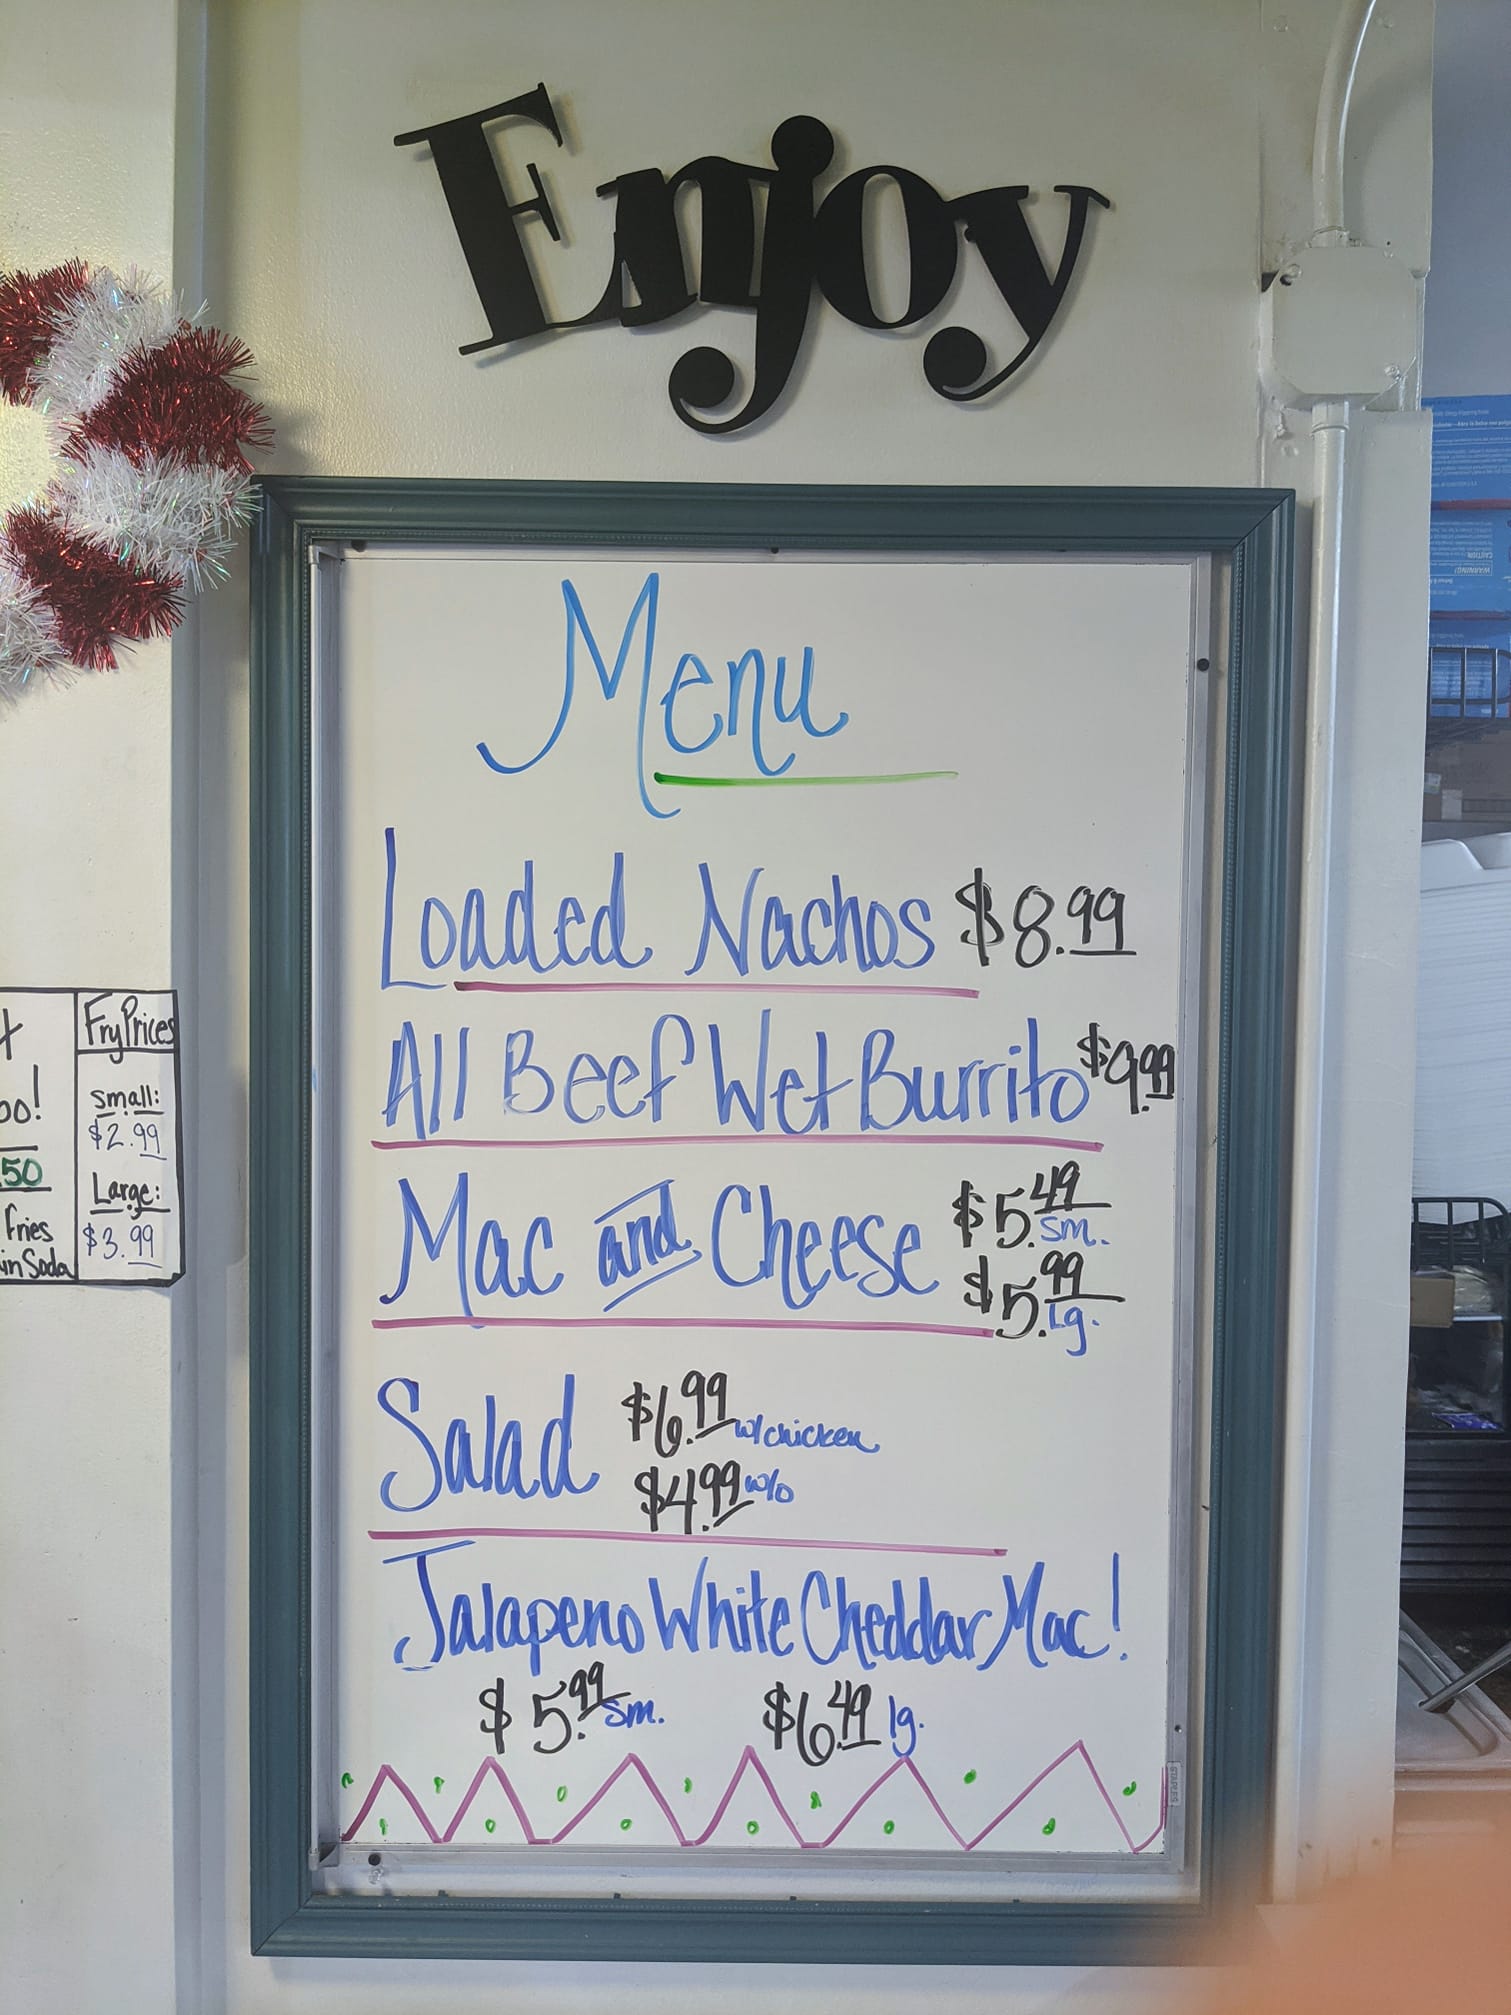 Enjoy
Menu
Loaded Nachos $8.99
All Beef Wet Burrito $9.99
Mac and Cheese $5.49 sm.
$5.99 Lg.
Salad $6.99 w/chicken
$4.99 w/o
Jalapeno White Cheddar Mac!
$5.99 sm. $6.49 lg.
Fry Prices
small:
$2.99
Large:
$3.99
50
Fries
in Soda
STAPLES
WARNING!
CAUTION